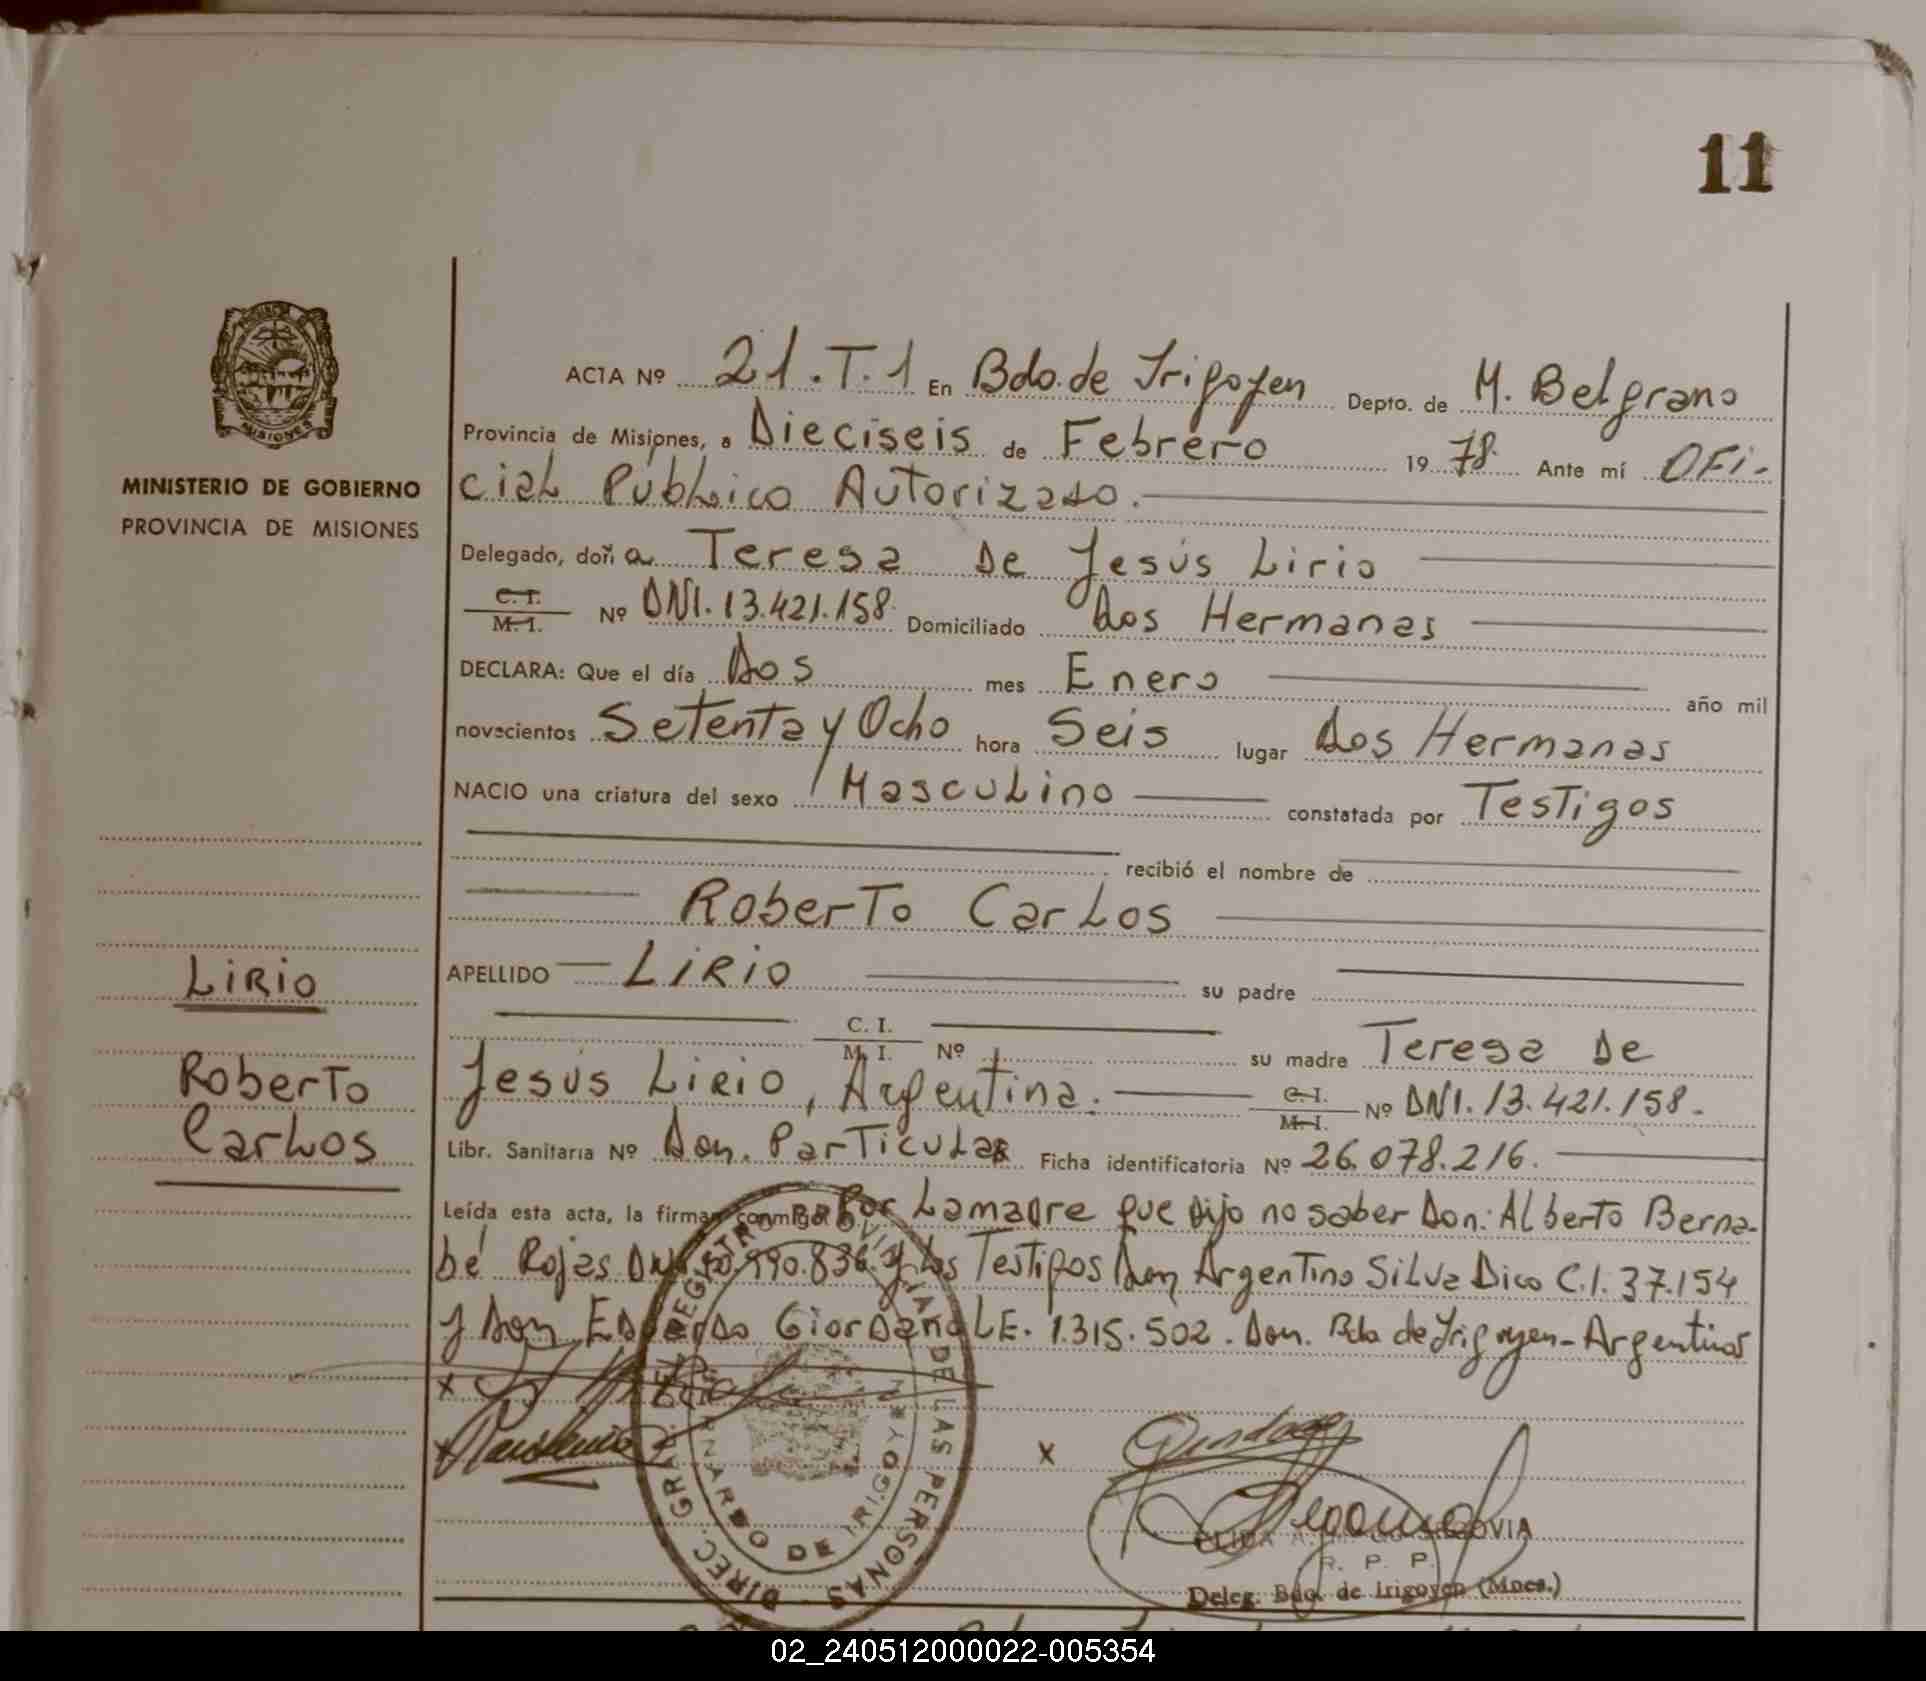 11
PROVINCIA DE
MISIONES
MINISTERIO DE GOBIERNO
PROVINCIA DE MISIONES
LIRIO
Roberto
Carlos
ACTA Nº 21.T.1 En Bdo. de Irigoyen Depto. de M. Belgrano
Provincia de Misiones, a Dieciseis de Febrero 1978. Ante mí OFi-
cial Público Autorizado.
Delegado, doña Teresa De Jesús Lirio
C. I. M. I. Nº DNI. 13.421.158. Domiciliado Dos Hermanas
DECLARA: Que el día Dos mes Enero año mil
novecientos Setenta y Ocho hora Seis lugar Dos Hermanas
NACIO una criatura del sexo Masculino constatada por Testigos
recibió el nombre de
Roberto Carlos
APELLIDO LIRIO su padre
C. I. M. I. Nº su madre Teresa De
Jesús Lirio, Argentina. C. I. M. I. Nº DNI. 13.421.158.
Libr. Sanitaria Nº Dom. Particular Ficha identificatoria Nº 26.078.216.
Leída esta acta, la firman conmigo Por La madre que dijo no saber Don: Alberto Berna-
bé Rojas y los Testigos Don Argentino Silva Dico C.I. 37.154
y Don Eduardo Giordano LE. 1.315.502. Dom. Bdo de Irigoyen - Argentinos
x
x
x
DIREC. GRAL. DEL REGISTRO PROVINCIAL DE LAS PERSONAS
BERNARDO DE IRIGOYEN
ELIDA SEGOVIA
R. P. P.
Deleg. Bdo. de Irigoyen (Mnes.)
02_240512000022-005354